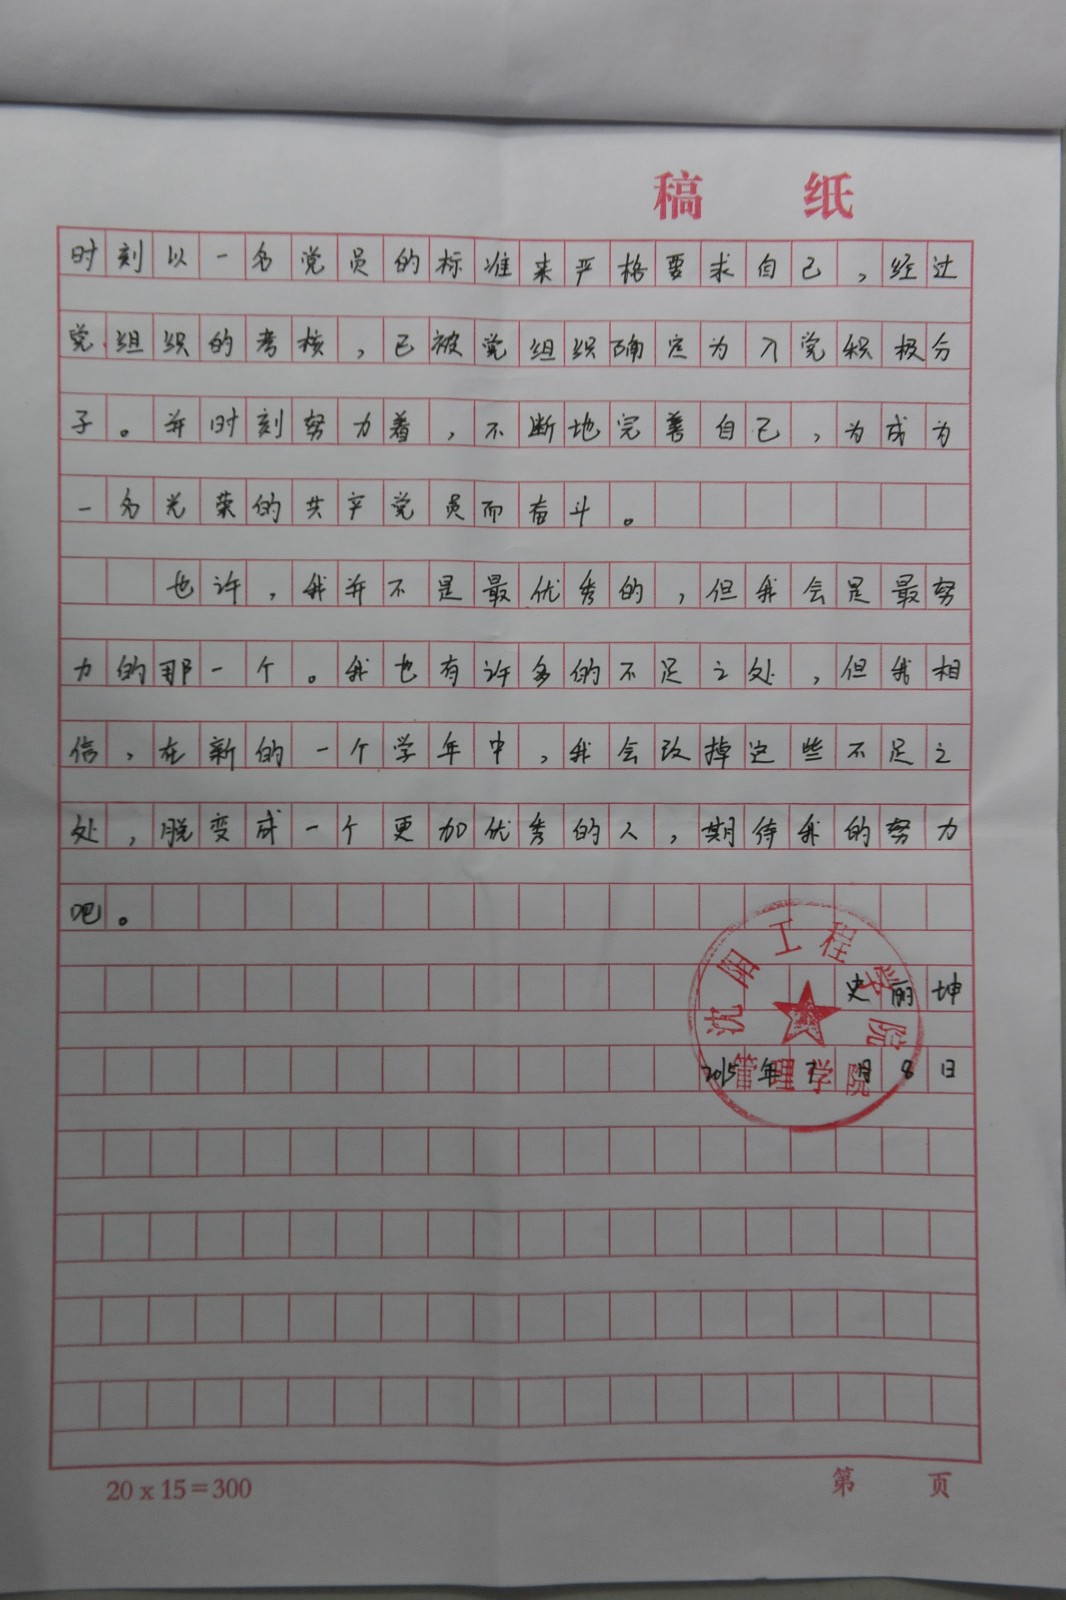 稿 纸
时刻以一名党员的标准来严格要求自己，经过
党组织的考核，已被党组织确定为入党积极分
子。并时刻努力着，不断地完善自己，为成为
一名光荣的共产党员而奋斗。
也许，我并不是最优秀的，但我会是最努
力的那一个。我也有许多的不足之处，但我相
信，在新的一个学年中，我会改掉这些不足之
处，脱变成一个更加优秀的人，期待我的努力
吧。
沈阳工程学院
史丽坤
管理学院
2015年 月8日
20 x 15=300
第 页